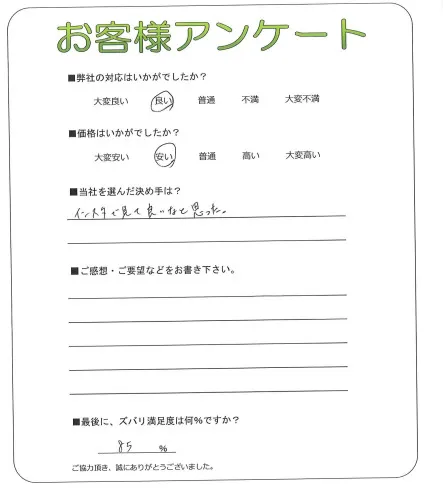 お客様アンケート
■弊社の対応はいかがでしたか？
大変良い 良い 普通 不満 大変不満
■価格はいかがでしたか？
大変安い 安い 普通 高い 大変高い
■当社を選んだ決め手は？
インスタで見て良いなと思った。
■ご感想・ご要望などをお書き下さい。
■最後に、ズバリ満足度は何％ですか？
85 ％
ご協力頂き、誠にありがとうございました。